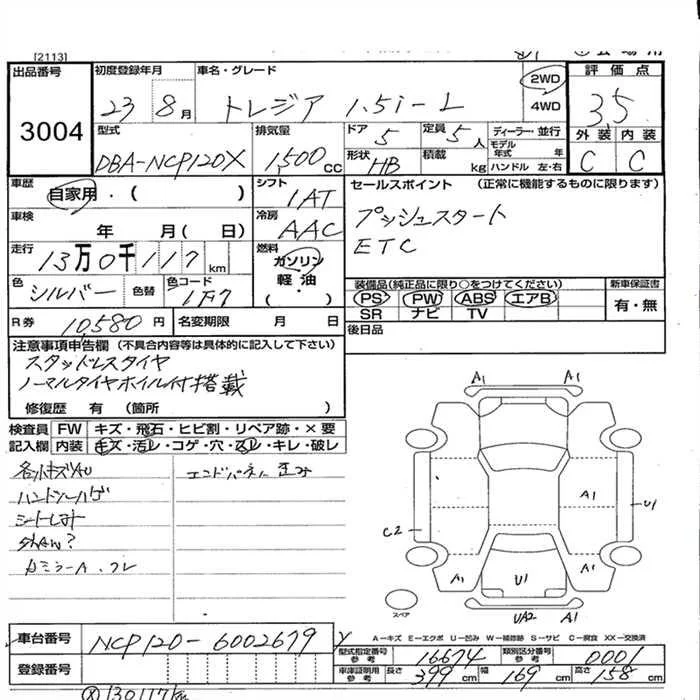 [2113]
出品番号 3004
初度登録年月 23 8月
車名・グレード トレジア 1.5i-L
2WD
4WD
評価点 3.5
外装 C 内装 C
型式 DBA-NCP120X
排気量 1,500 CC
ドア 5
定員 5人
形状 HB
積載 kg
ディーラー・並行
モデル年式 年
ハンドル 左・右
車歴 自家用・( )
シフト 1AT
車検 年 月( 日)
冷房 AAC
走行 13万0千117km
燃料 ガソリン 軽油・( )
色 シルバー 色替
色コード 1F7
セールスポイント (正常に機能するものに限ります)
プッシュスタート
ETC
装備品(純正品に限り○をつけてください)
PS PW ABS エアB
SR ナビ TV
新車保証書 有・無
R券 10,580円
名変期限 月 日
後日品
注意事項申告欄 (不具合内容等は具体的に記入して下さい)
スタッドレスタイヤ
ノーマルタイヤホイル付搭載
修復歴 有 (箇所 )
検査員記入欄
FW キズ・飛石・ヒビ割・リペア跡・×要
内装 キズ・汚レ・コゲ・穴・スレ・キレ・破レ
各小キズAU
エンドパネル 歪み
ハンドル ハゲ
シートしみ
A1 A1
A1
U1
C2
A1 U1 A1
UA2 A1
スペア
A-キズ E-エクボ U-凹み W-補修跡 S-サビ C-腐食 XX-交換済
車台番号 NCP120-6002679
登録番号
型式指定番号 参考 16674
類別区分番号 参考 0001
車庫証明用 参考 長さ 399cm 幅 169cm 高さ 158cm
130117km